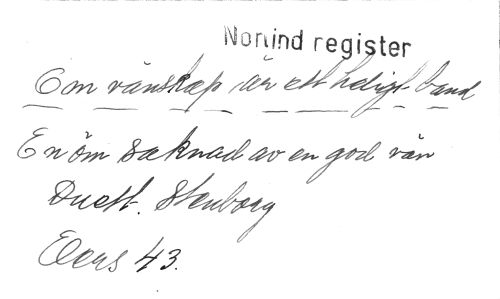 Nonind register
Om vänskap är ett heligt band
En öm saknad av en god vän
Duett. Stenborg
43.